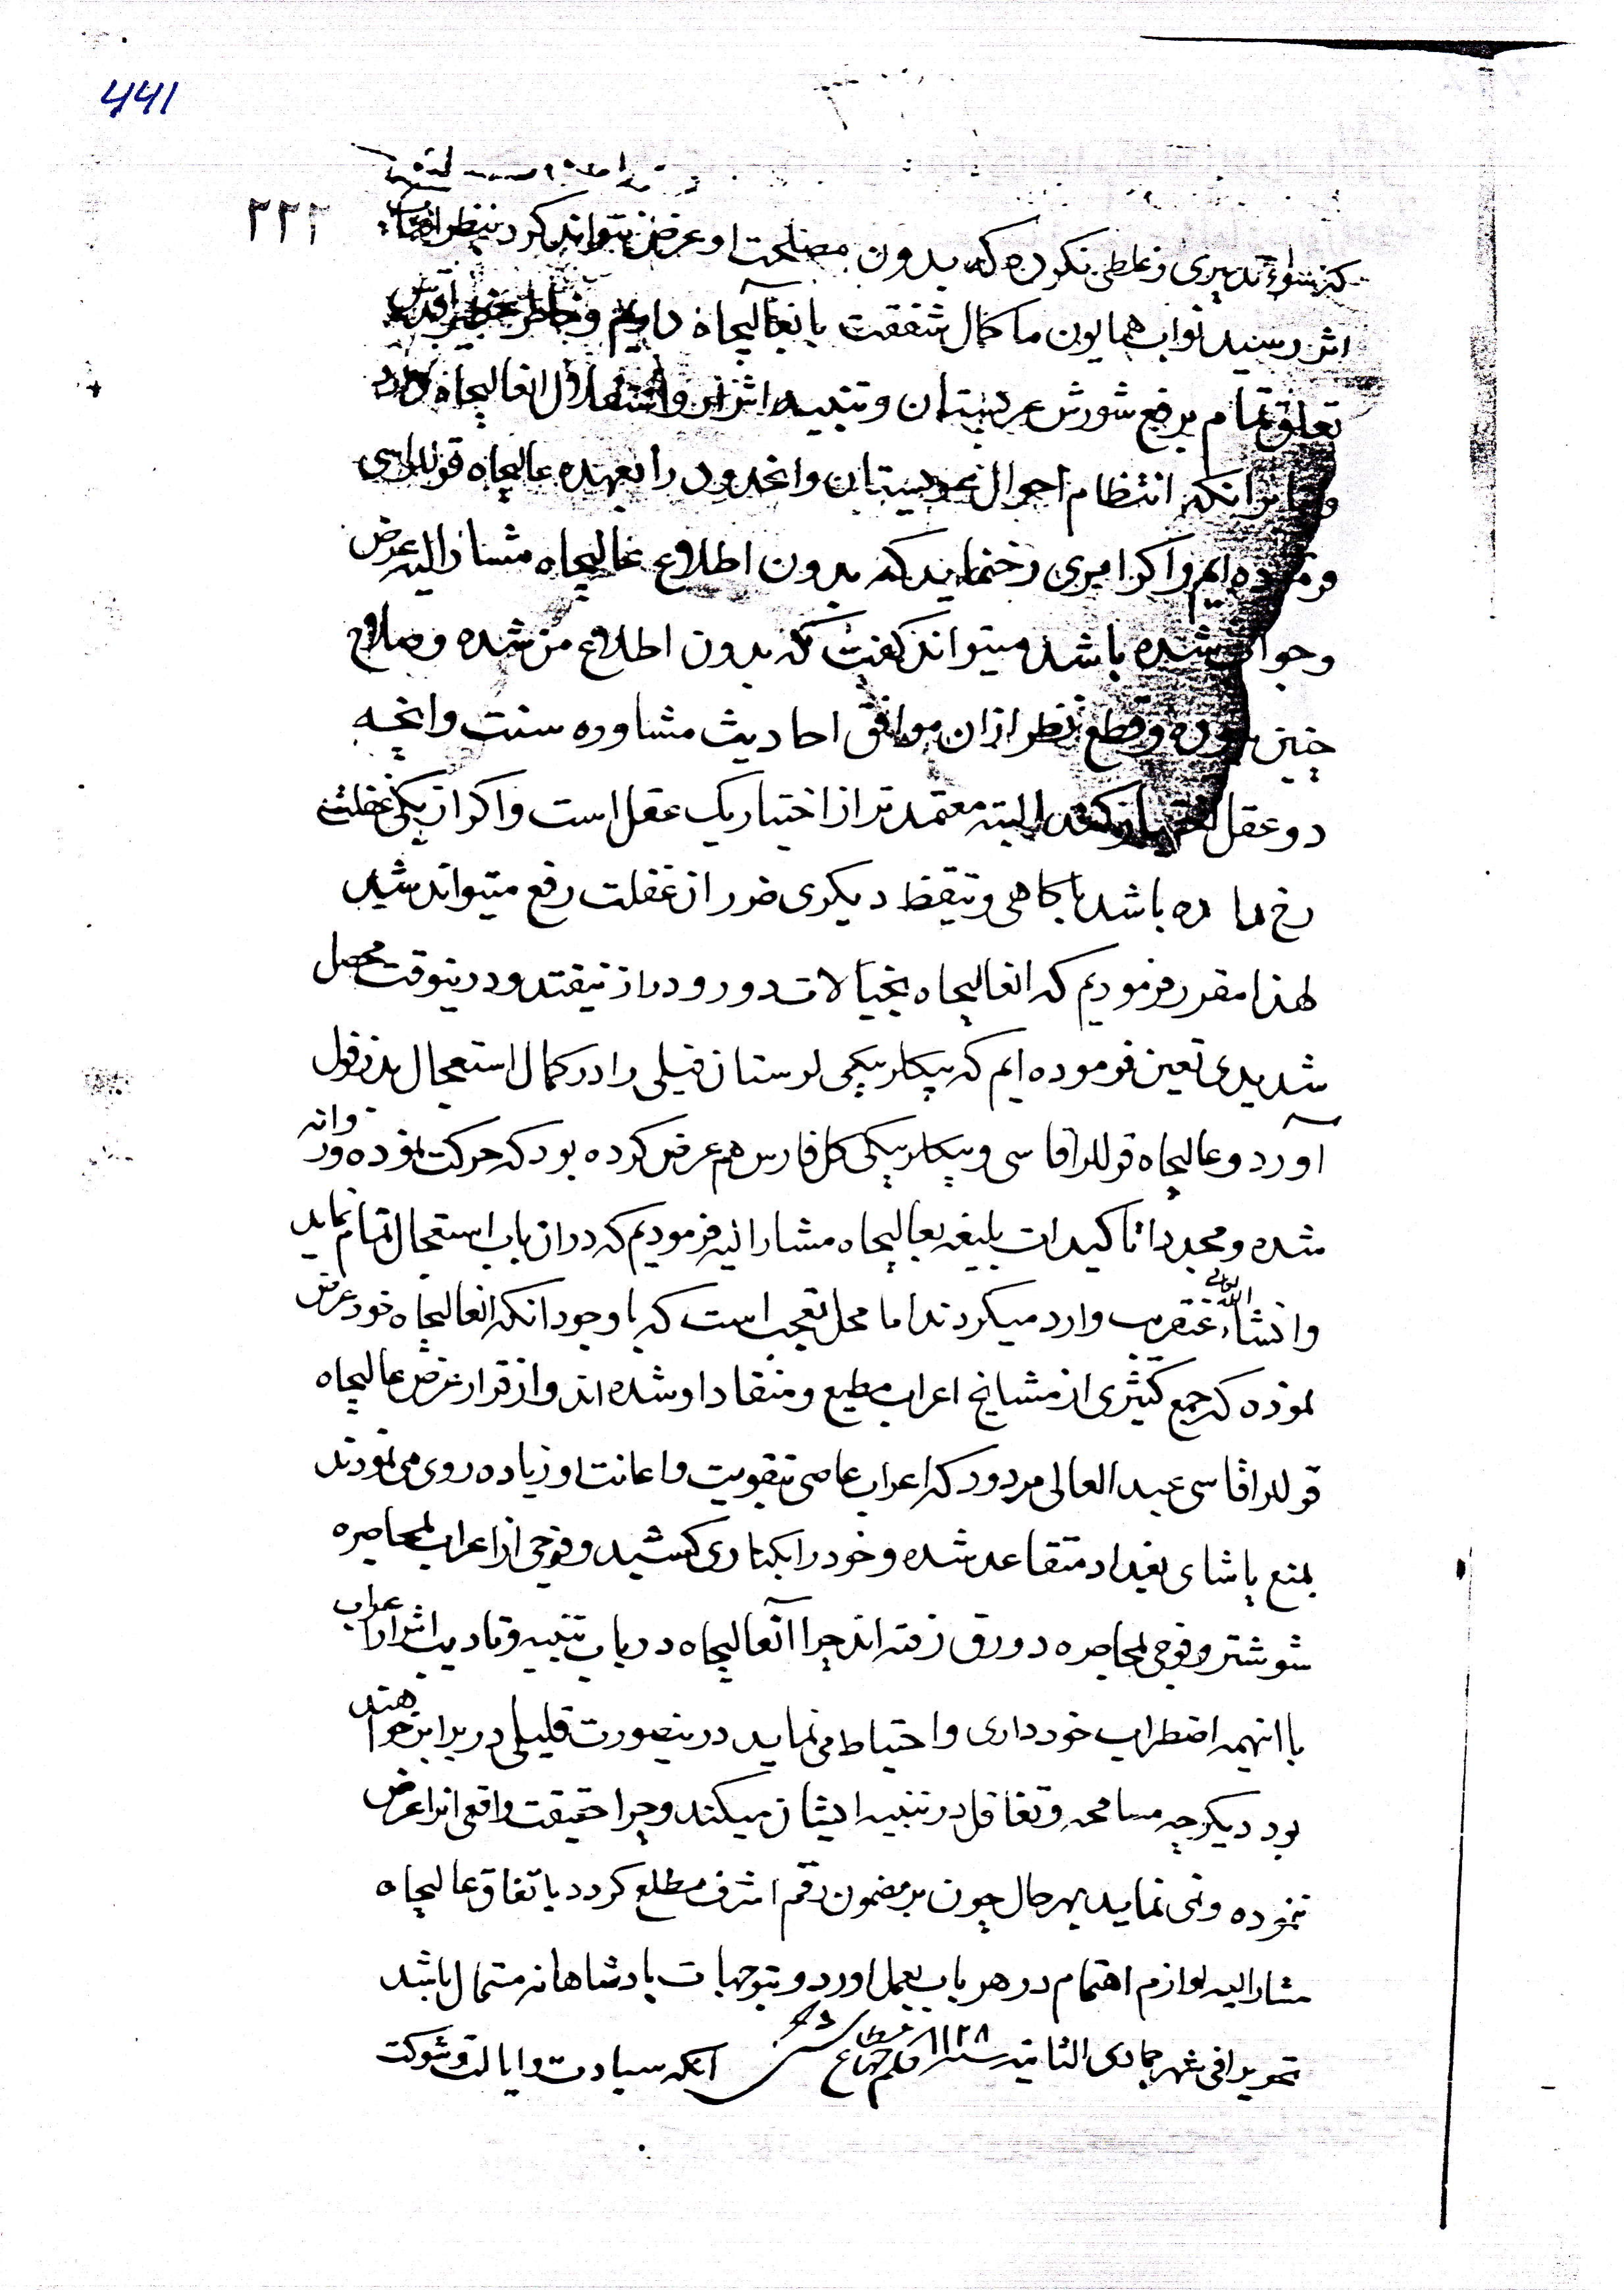 ۴۴۱
۲۲۲
که بسوء تدبیری و غلطی نکرده که بدون مصلحت او عرض نتواند کرد بنظر
اثر رسید نواب همایون ما کمال شفقت بانعالیجاه داریم و خاطر خطیر اقدس
تعلق تمام برفع شورش عربستان و تنبیه اشرار و استقلال انعالیجاه دارد
انکه انتظام احوال عربستان و انحدود را بعهده عالیجاه قوللراقاسی
فرموده ایم و اکر امری رخنماید که بدون اطلاع عالیجاه مشارالیه عرض
و جواب شده باشد میتواند کفت که بدون اطلاع من شده و صلاح
چنین بوده و قطع نظر ازان موافق احادیث مشاوره سنت وانچه
دو عقل اختیار کند البته معتمدتر از اختیار یک عقل است و اکر از یکی غفلتی
رخ داده باشد باکاهی و تیقظ دیکری ضرر از غفلت رفع میتواند شد
لهذا مقرر فرمودیم که انعالیجاه بخیالات دور و دراز نیفتد و درینوقت محصل
شدیدی تعین فرموده ایم که بیکلربیکی لرستان فیلی را در کمال استعجال بدزفول
آورد و عالیجاه قوللراقاسی و بیکلربیکی کل فارس هم عرض کرده بود که حرکت نموده و روانه
شده و مجددا تاکیدات بلیغه بعالیجاه مشارالیه فرمودیم که دران باب استعجال تمام نماید
و انشاء الله تعالی عنقریب وارد میکردند اما محل تعجب است که باوجود انکه انعالیجاه خود عرض
نموده که جمع کثیری از مشایخ اعراب مطیع و منقاد او شده اند و از قرار عرض عالیجاه
قوللراقاسی عبد العالی مردود که اعراب عاصی بتقویت و اعانت او زیاده روی می نمودند
بمنع پاشای بغداد متقاعد شده و خود را بکناری کشید و فوجی از اعراب بمحاصره
شوشتر و فوجی بمحاصره دورق رفته اند چرا آنعالیجاه در باب تنبیه و تادیب اشرار اعراب
با انهمه اضطراب خودداری و احتیاط می نماید درینصورت قلیلی در برابر خواهند
بود دیکر چه مسامحه و تغافل در تنبیه ایشان میکند و چرا حقیقت واقعی انرا عرض
ننموده و نمی نماید بهرحال چون بر مضمون رقم اشرف مطلع کردد باتفاق عالیجاه
مشارالیه لوازم اهتمام در هر باب بعمل اورد و بتوجهات پادشاهانه مستمال باشد
تحریرا فی شهر جمادی الثانیه سنه ۱۱۲۸ آنکه سیادت و ایالت و شوکت